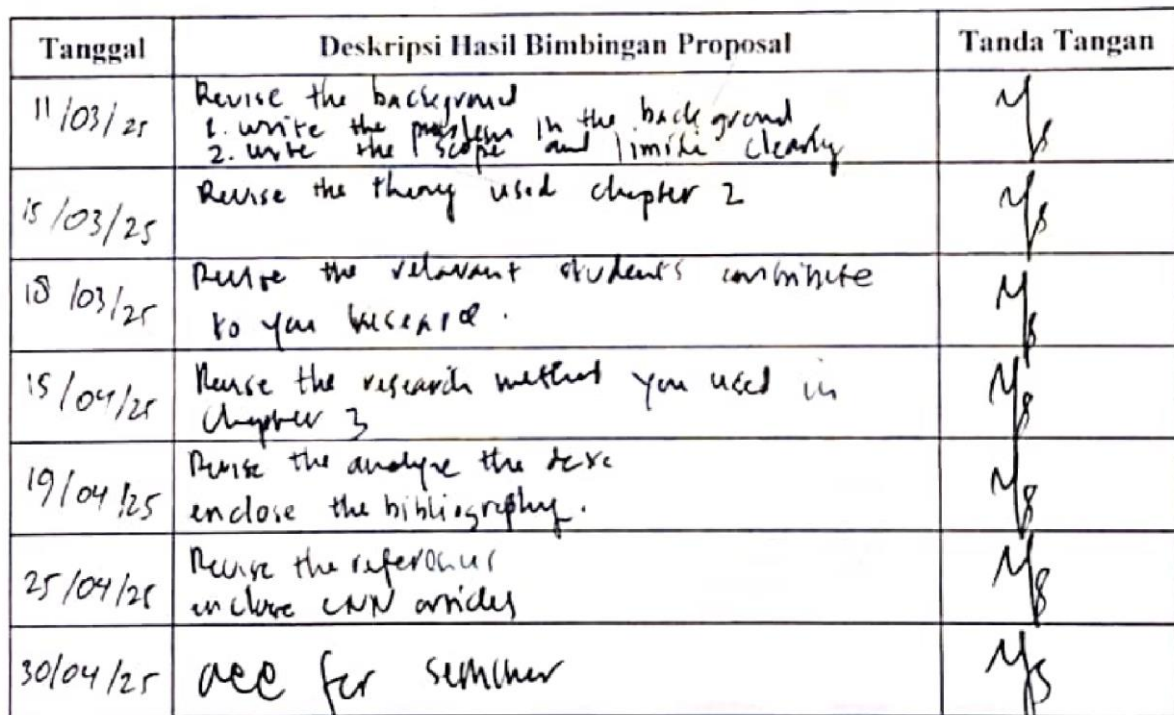 Tanggal Deskripsi Hasil Bimbingan Proposal Tanda Tangan
11/03/25 Revise the background
1. write the problem in the background
2. write the scope and limit clearly
15/03/25 Revise the theory used chapter 2
18/03/25 Revise the relavant students contribute
to you research.
15/04/25 Revise the research method you used in
chapter 3
19/04/25 Revise the analyze the
enclose the bibliography.
25/04/25 Revise the references
enclose CNN articles
30/04/25 acc for seminar